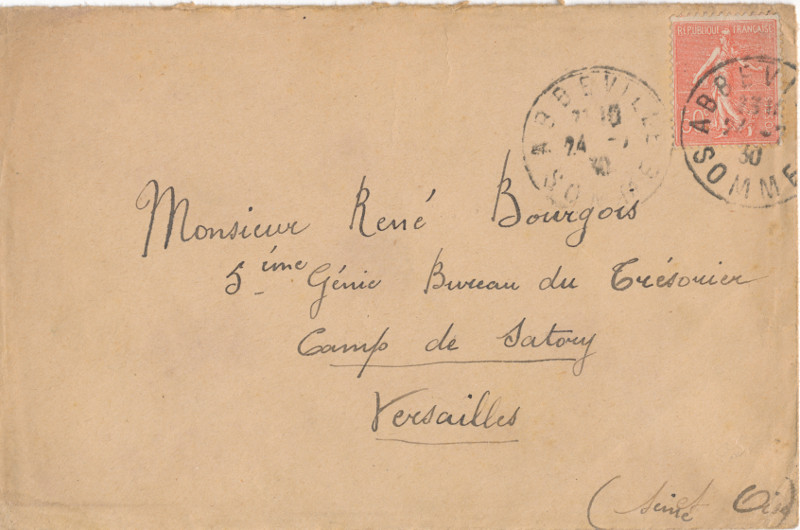 REPUBLIQUE FRANÇAISE
ABBEVILLE
24
30
SOMME
ABBEVI
30
SOMME
Monsieur René Bourgois
5ème Génie Bureau du Trésorier
Camp de Satory
Versailles
(Seine Oise